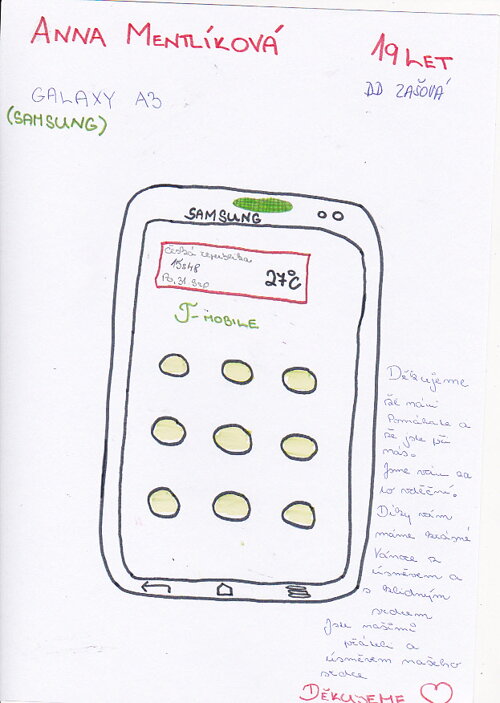 ANNA MENTLÍKOVÁ
19 LET
DD ZAŠOVÁ
GALAXY A3
(SAMSUNG)
SAMSUNG
Česká republika
27°C
Po, 31 srp
T-MOBILE
Děkujeme
že nám
Pomáháte a
že jste při
nás.
Jsme vám za
to vděční.
Díky vám
máme krásné
Vánoce s
úsměvem a
s klidným
srdcem
Jste našimi
přáteli a
úsměvem našeho
srdce
DĚKUJEME